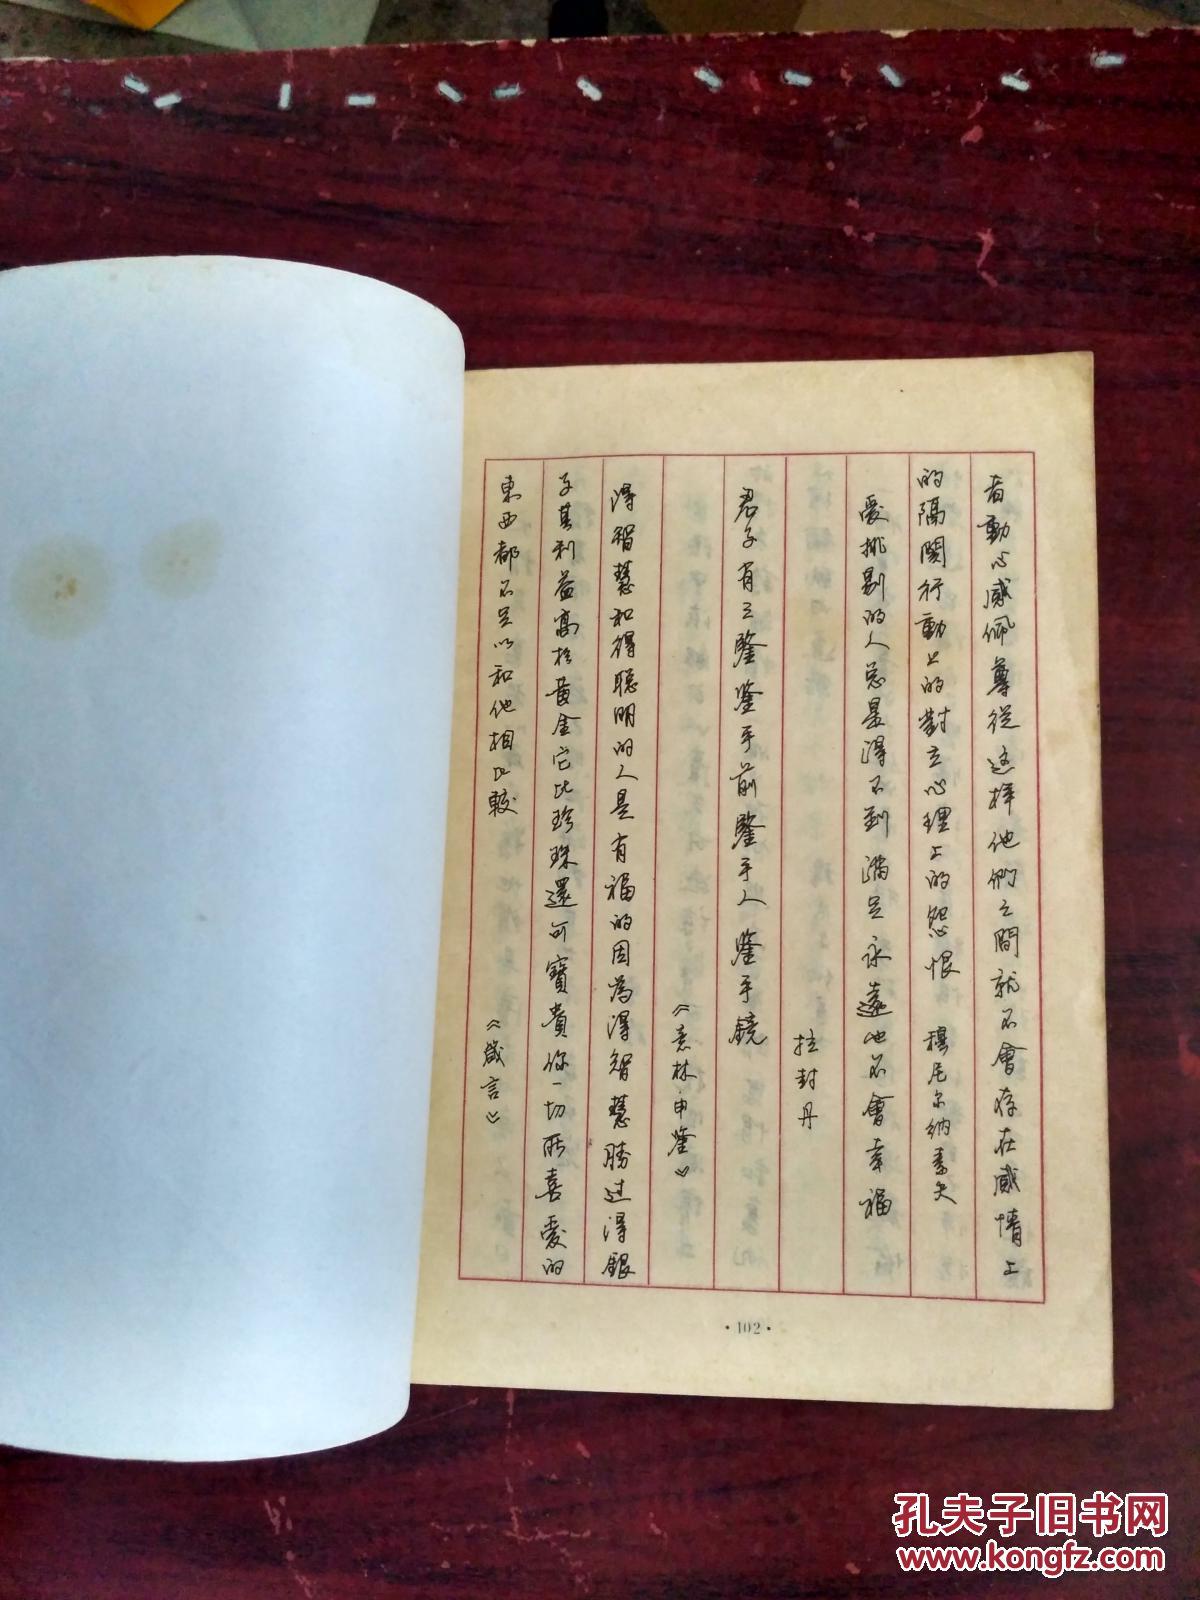 者動心感佩尊從这样他們之間就不會存在感情上
的隔閡行動上的對立心理上的怨恨 穆尼尔納素夫
愛挑剔的人总是得不到滿足永遠也不會幸福
拉封丹
君子有三鑒鑒乎前鑒乎人鑒乎鏡
《意林·申鑒》
得智慧和得聰明的人是有福的因為得智慧勝过得銀
子其利益高於黄金它比珍珠還可寶貴你一切所喜愛的
東西都不足以和他相比較 《箴言》
·102·
孔夫子旧书网
www.kongfz.com